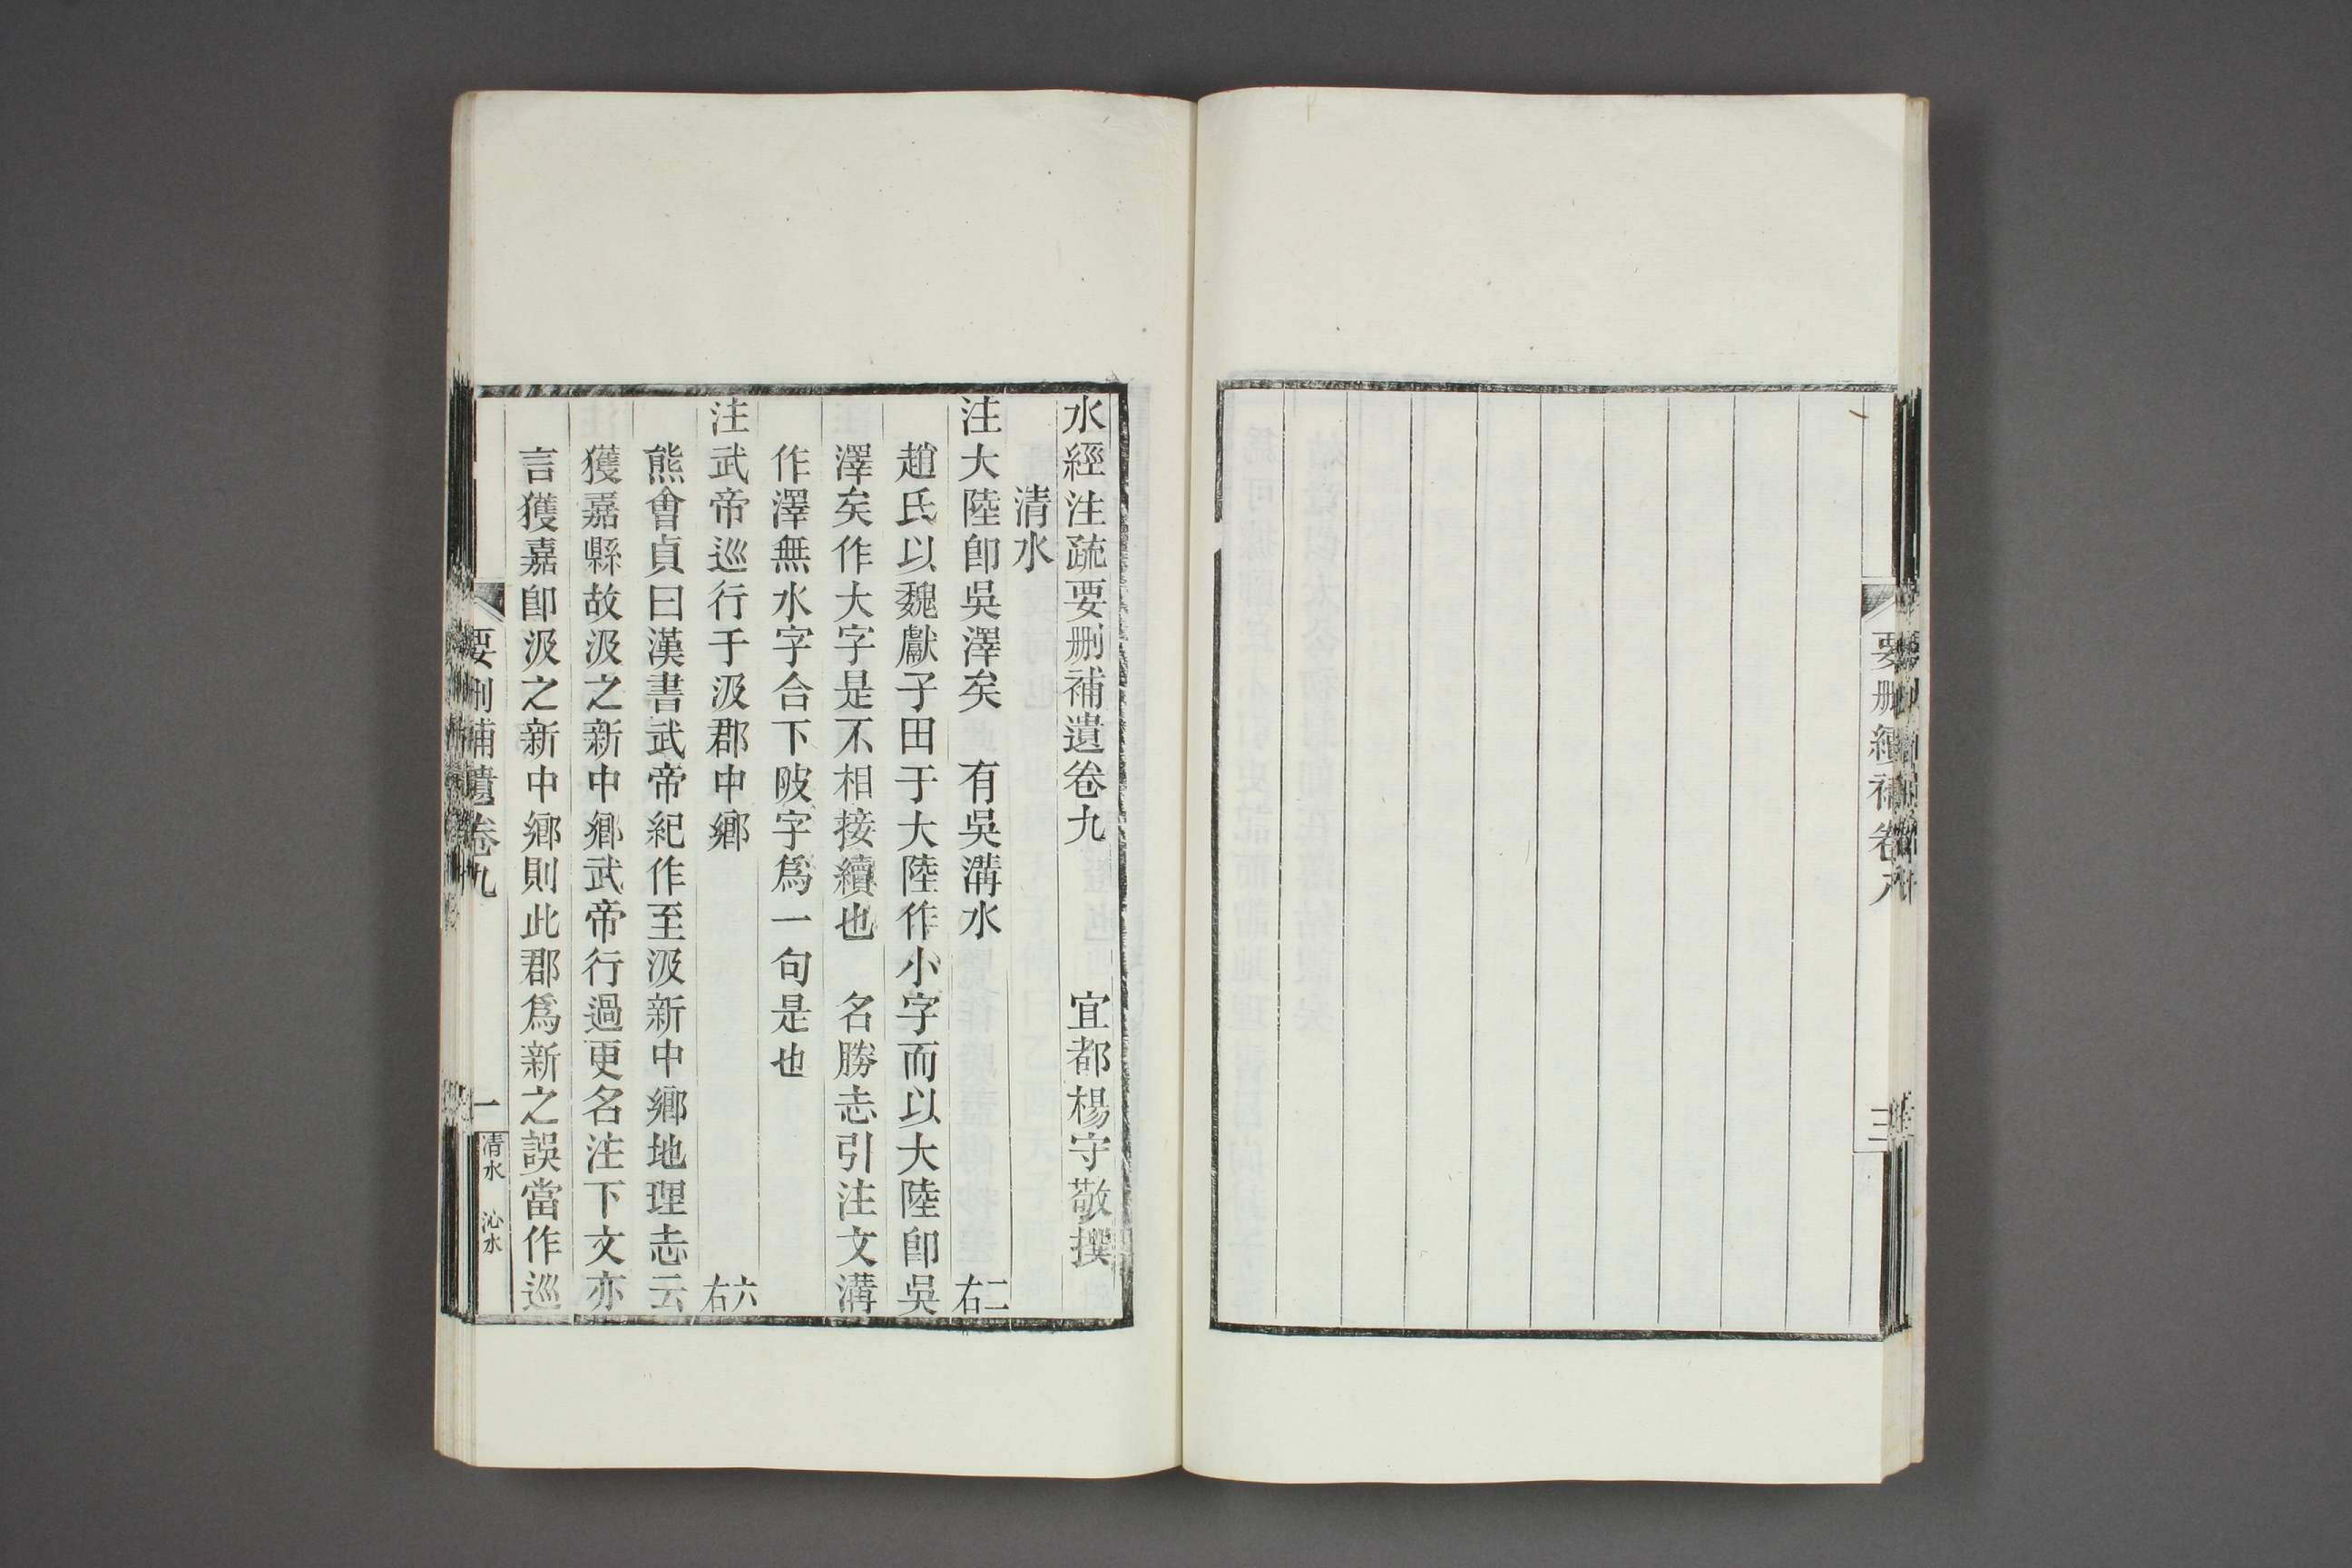 要刪續補卷八
三
水經注疏要刪補遺卷九　宜都楊守敬撰
清水
注大陸卽吳澤矣　有吳溝水　二右
趙氏以魏獻子田于大陸作小字而以大陸卽吳
澤矣作大字是不相接續也　名勝志引注文溝
作澤無水字合下陂字爲一句是也
注武帝巡行于汲郡中鄉　六右
熊會貞曰漢書武帝紀作至汲新中鄉地理志云
獲嘉縣故汲之新中鄉武帝行過更名注下文亦
言獲嘉卽汲之新中鄉則此郡爲新之誤當作巡
要刪補遺卷九
一
清水　沁水